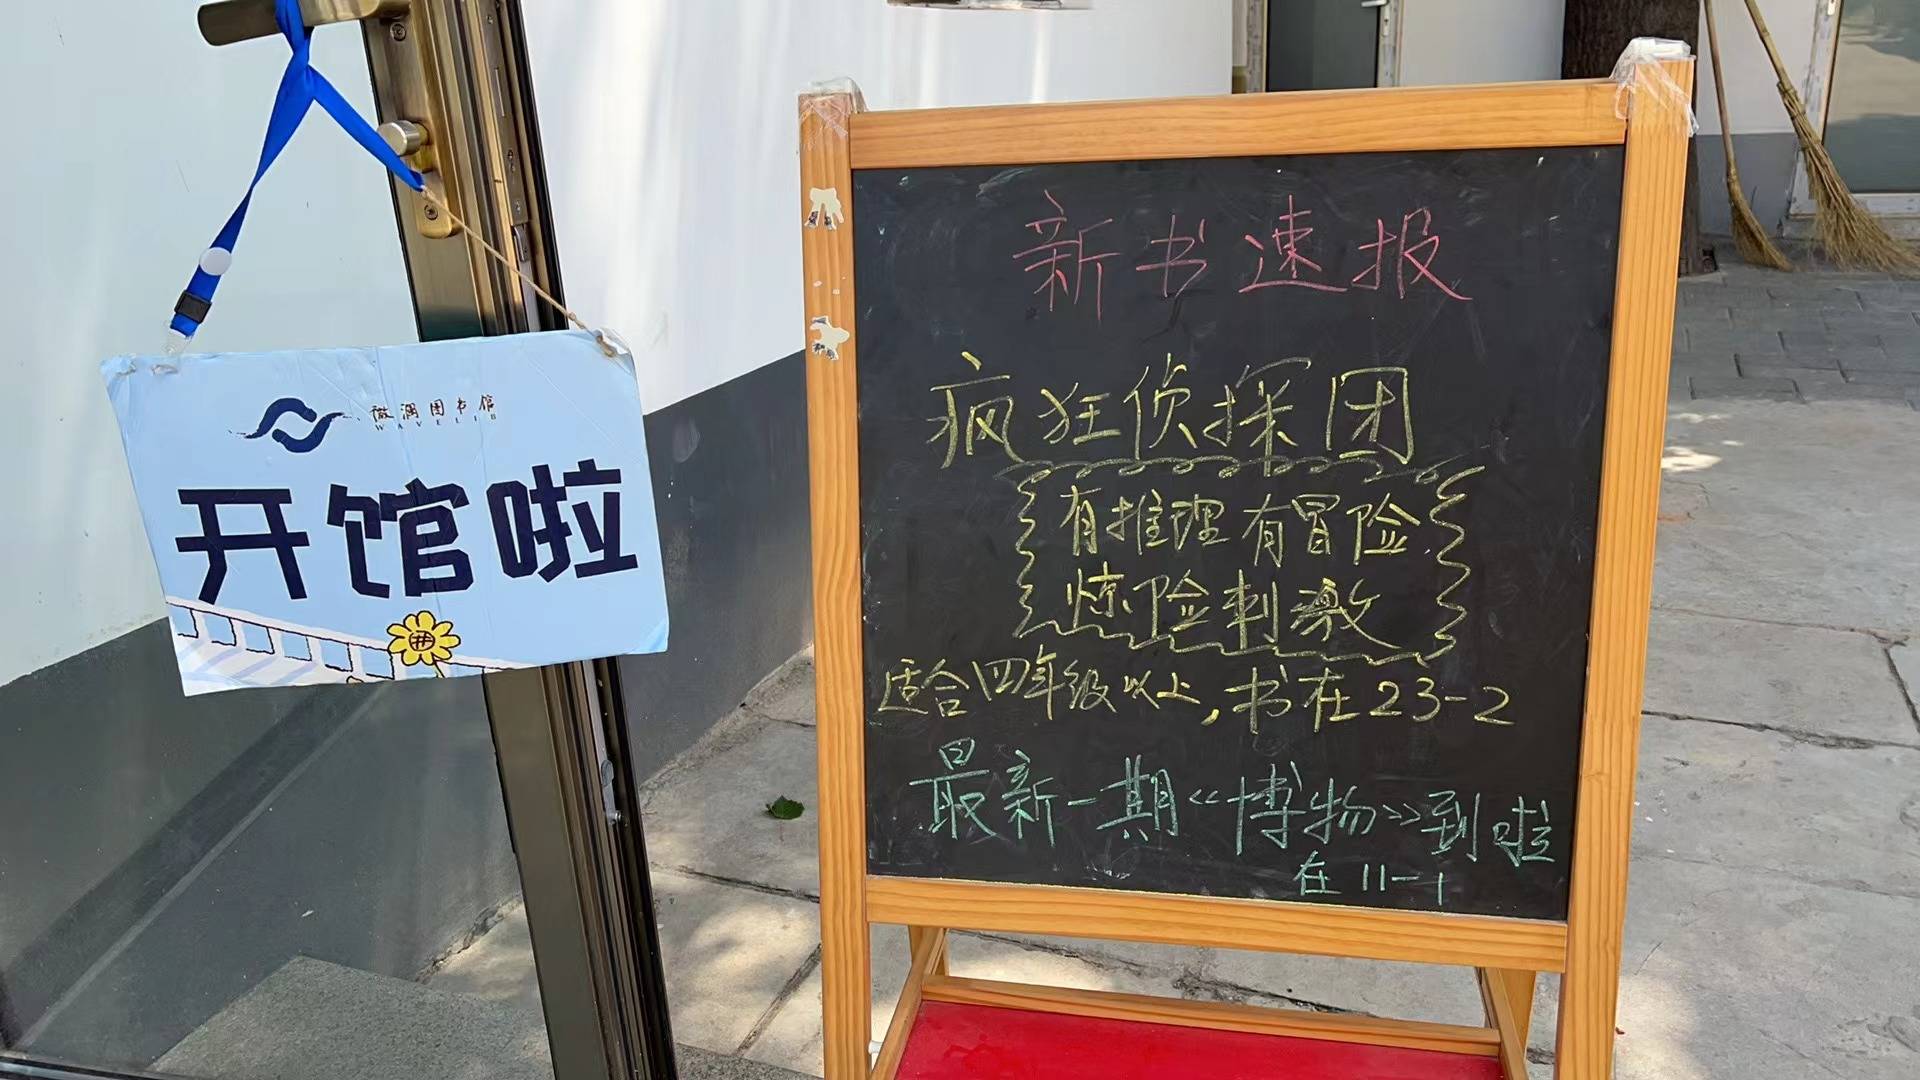 微澜图书馆
WAVELIB
开馆啦
新书速报
疯狂侦探团
有推理有冒险
惊险刺激
适合四年级以上,书在23-2
最新一期《博物》到啦
在11-1